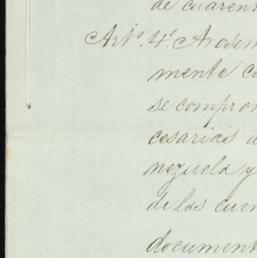 de cuarent
Arto. 4o. Arosem
mente co
se compro
cesarias a
nezuela y
de las cuen
document